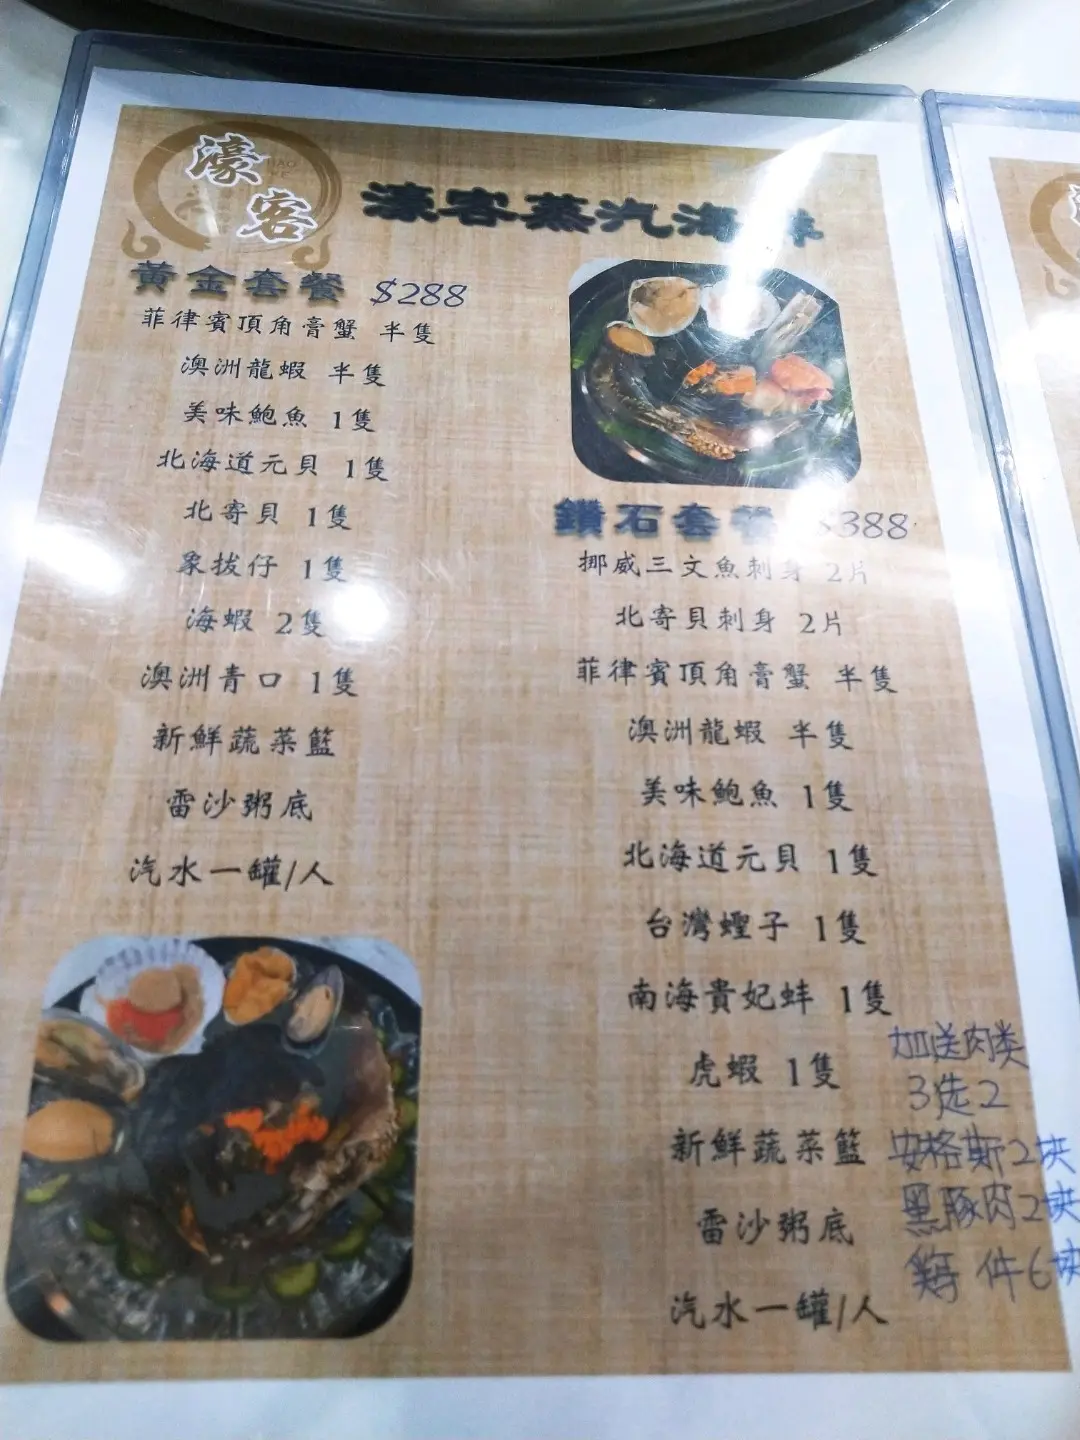 濠
客
濠客蒸汽海鮮
黃金套餐 $288
菲律賓頂角膏蟹 半隻
澳洲龍蝦 半隻
美味鮑魚 1隻
北海道元貝 1隻
北寄貝 1隻
象拔仔 1隻
海蝦 2隻
澳洲青口 1隻
新鮮蔬菜籃
雷沙粥底
汽水一罐/人
鑽石套餐 $388
挪威三文魚刺身 2片
北寄貝刺身 2片
菲律賓頂角膏蟹 半隻
澳洲龍蝦 半隻
美味鮑魚 1隻
北海道元貝 1隻
台灣蟶子 1隻
南海貴妃蚌 1隻
虎蝦 1隻
新鮮蔬菜籃
雷沙粥底
汽水一罐/人
加送肉类
3选2
安格斯2块
黑豚肉2块
件6块